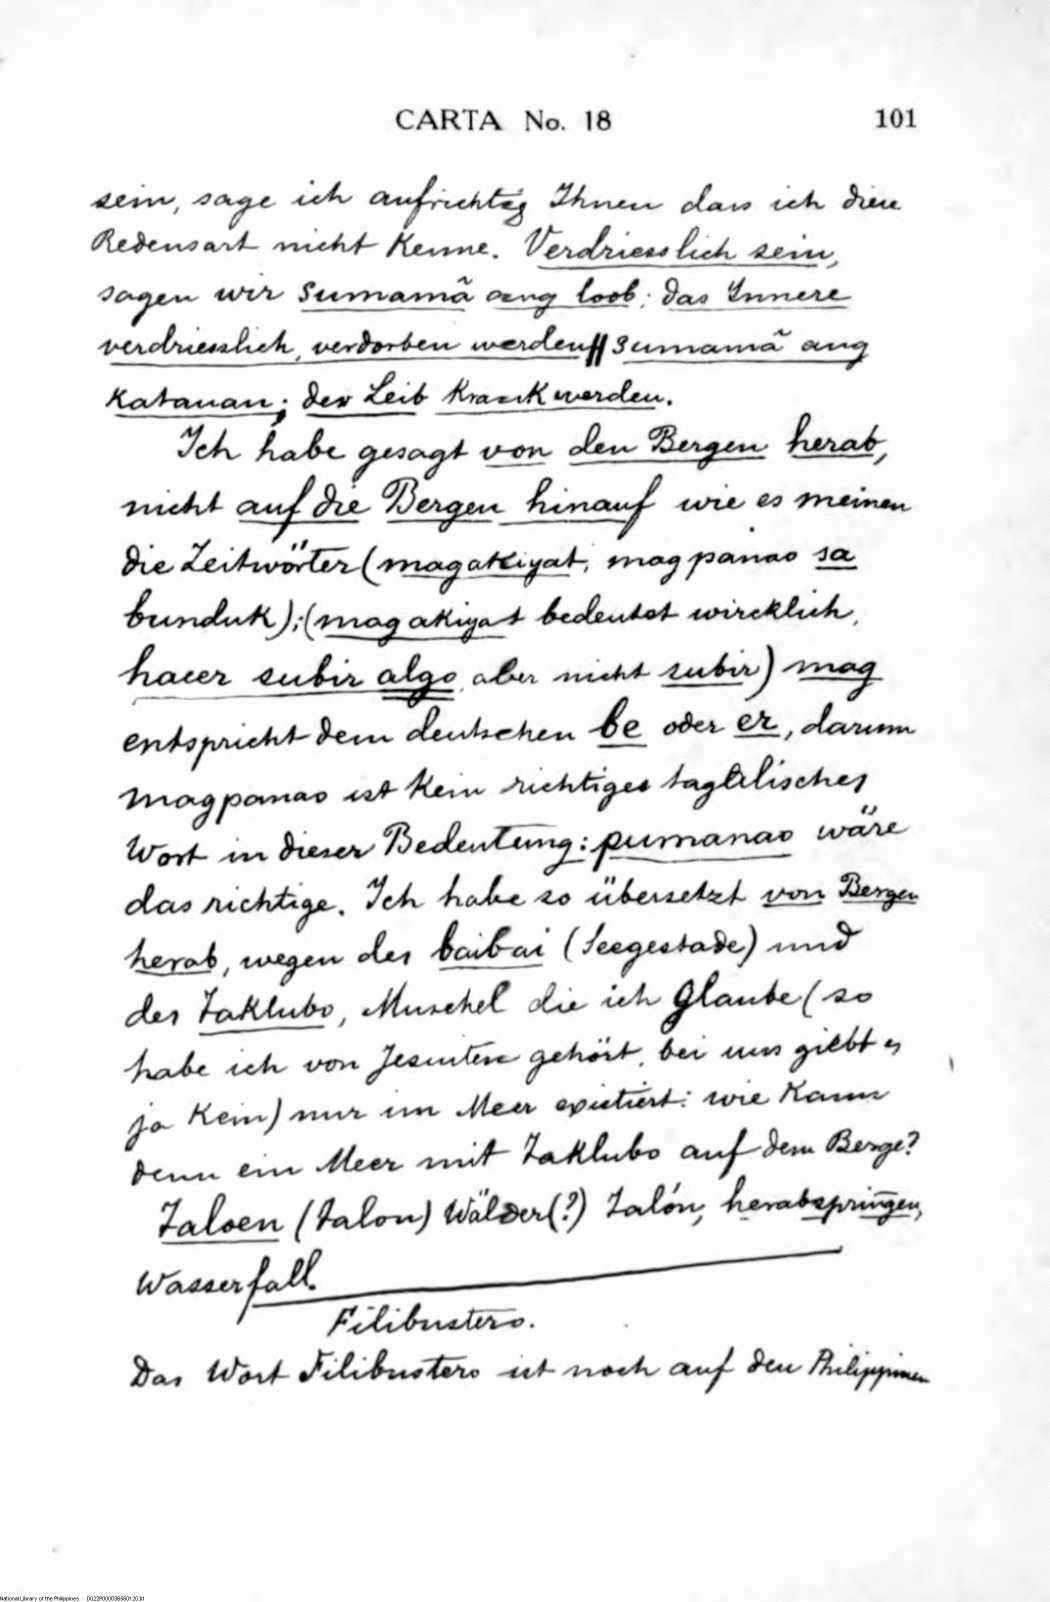 CARTA No. 18 101
sein, sage ich aufrichtig Ihnen dass ich diese
Redensart nicht kenne. Verdriesslich sein,
sagen wir sumamã ang loob: das Innere
verdriesslich, verdorben werden || sumamã ang
katauan; der Leib krank werden.
Ich habe gesagt von den Bergen herab,
nicht auf die Bergen hinauf wie es meinen
die Zeitwörter (magakiyat, magpanao sa
bunduk); (magakiyat bedeutet wircklich,
hacer subir algo, aber nicht subir) mag
entspricht dem deutschen be oder er, darum
magpanao ist kein richtiges tagalisches
Wort in dieser Bedeutung: pumanao wäre
das richtige. Ich habe so übersetzt von Bergen
herab, wegen des baibai (Seegestade) und
des taklubo, Muschel die ich glaube (so
habe ich von Jesuiten gehört, bei uns giebt es
ja kein) nur im Meer existiert: wie kann
denn ein Meer mit taklubo auf dem Berge?
Taloen (talon) Wälder (?) Talón, herabspringen,
Wasserfall.
Filibustero.
Das Wort Filibustero ist noch auf den Philippinen
National Library of the Philippines